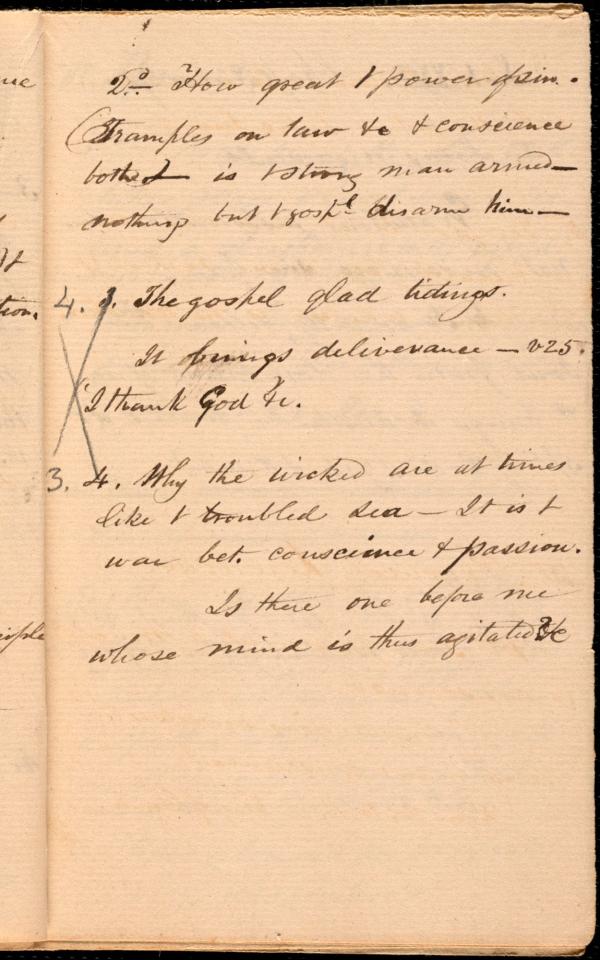 2º. How great t power of sin.
(Tramples on law &c & conscience
both) I is t strong man armed—
nothing but t gospl disarm him—
4. 3. The gospel glad tidings.
It brings deliverance — v25.
'I thank God &c.
3. 4. Why the wicked are at times
like t troubled sea — It is t
war bet. conscience & passion.
Is there one before me
whose mind is thus agitated? &c